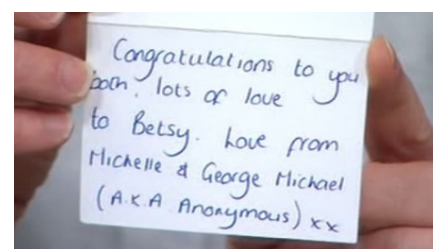 Congratulations to you
both. lots of love
to Betsy. Love from
Michelle & George Michael
(A.K.A Anonymous) xx